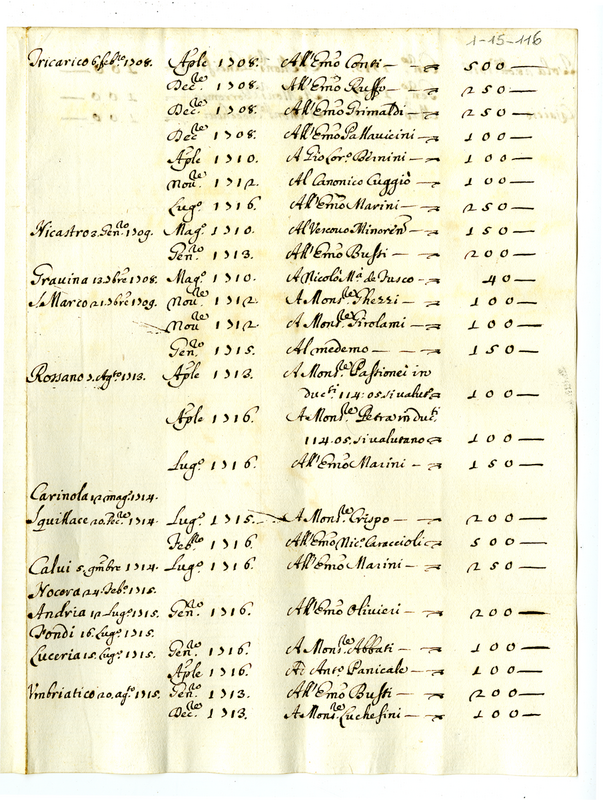 1-15-116
Tricarico 6. feb.ro 1708. Aple 1708. All'Emo Conti — 500 —
Dec.re 1708. All'Emo Ruffo — 250 —
Dec.re 1708. All'Emo Grimaldi — 250 —
Dec.re 1708. All'Emo Pallavicini — 100 —
Aple 1710. A Gio Lor.o Bernini — 100 —
Nou.re 1712. Al Canonico Cuggiò — 100 —
Lug.o 1716. All'Emo Marini — 250 —
Nicastro 2. Gen.ro 1709. Mag.o 1710. Al Vescouo Minoren — 150 —
Gen.ro 1713. All'Emo Bussi — 200 —
Gravina 1708. Mag.o 1710. A Nicolò M.a de Fusco — 40 —
S. Marco 1709. Nou.re 1712. A Mons.re Ghezzi — 100 —
Nou.re 1712. A Mons.re Girolami — 100 —
Gen.ro 1715. Al medemo — 150 —
Rossano 7. Ag.to 1713. Aple 1713. A Mons.re Passionei in
duc.ti 114:05. si valut.o 100 —
Aple 1716. A Mons.re Petra in duc.ti
114.05. si valutano 100 —
Lug.o 1716. All'Emo Marini — 150 —
Carinola 12 mag.o 1714.
Squillace 20. Dec.re 1714. Lug.o 1715. A Mons.re Crispo — 200 —
Feb.ro 1716. All'Emo Nic.o Caraccioli 500 —
Calui 5. gmbre 1714. Lug.o 1716. All'Emo Marini — 250 —
Nocera 24. Feb.o 1715.
Andria 12 Lug.o 1715. Gen.ro 1716. All'Emo Olivieri — 200 —
Fondi 16. Lug.o 1715.
Luceria 15. Lug.o 1715. Gen.ro 1716. A Mons.re Abbati — 100 —
Aple 1716. Ad Ant.o Panicale — 100 —
Vmbriatico 20. ag.to 1715. Gen.ro 1713. All'Emo Bussi — 200 —
Dec.re 1713. A Mons.re Luchesini — 100 —